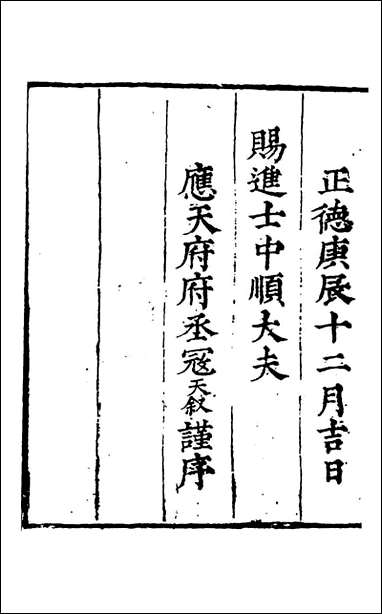 正德庚辰十二月吉日
賜進士中順大夫
應天府府丞冦天叙謹序